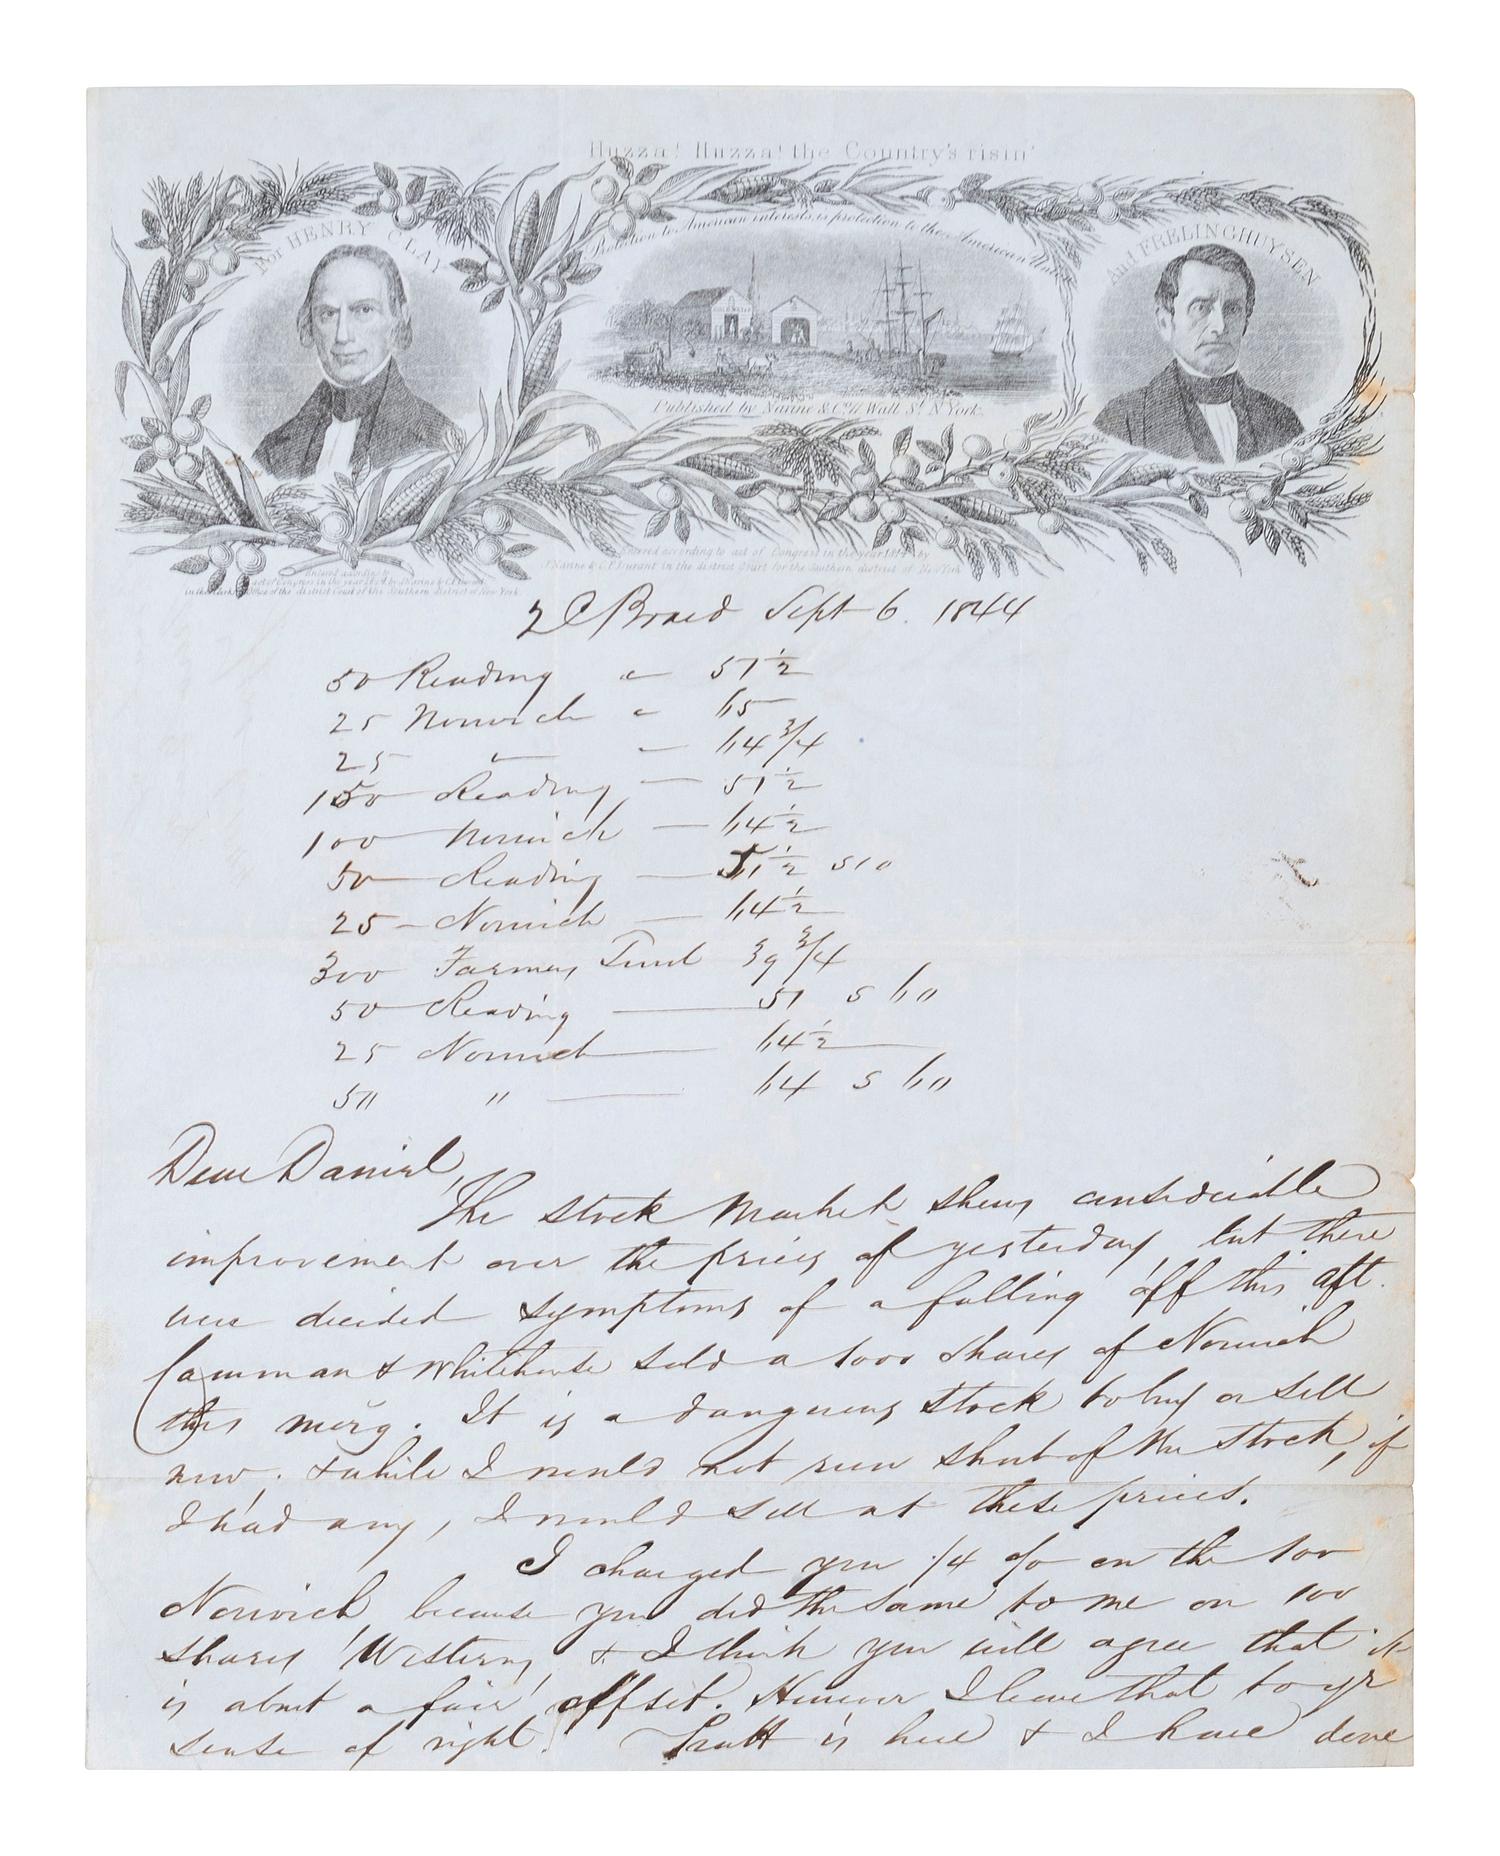 Huzza! Huzza! the Country's risin'
For HENRY CLAY
Protection to American interests, is protection to the American Union
And FRELINGHUYSEN
Published by Narine & Co. 11 Wall St. N. York.
Entered according to act of Congress in the year 1844 by
J. Narine & C.F. Durant in the district Court for the Southern district of New York
Entered according to
act of Congress in the year 1844 by J. Narine & C.F. Durant
in the Clerks Office of the district Court of the Southern district of New York
2 C Board Sept 6. 1844
50 Reading a 51 1/2
25 Norwich a 65
25 " — 64 3/4
150 Reading — 51 1/2
100 Norwich — 64 1/2
50 Reading — 51 1/2 s10
25 — Norwich — 64 1/2
300 Farmers 39 3/4
50 Reading — 51 s 60
25 Norwich — 64 1/2
50 " — 64 s 60
Dear Daniel,
The Stock Market shews considerable
improvement over the prices of yesterday, but there
were decided symptoms of a falling off this aft.
Camman & Whitehouse sold a 1000 shares of Norwich
this morg. It is a dangerous stock to buy or sell
now, & while I would not run short of the stock, if
I had any, I would sell at these prices.
I charged you 1/4 % on the 100
Norwich because you did the same to me on 100
shares 'Western,' & I think you will agree that it
is about a fair offset. However I leave that to yr
sense of right! Pratt is here & I have done